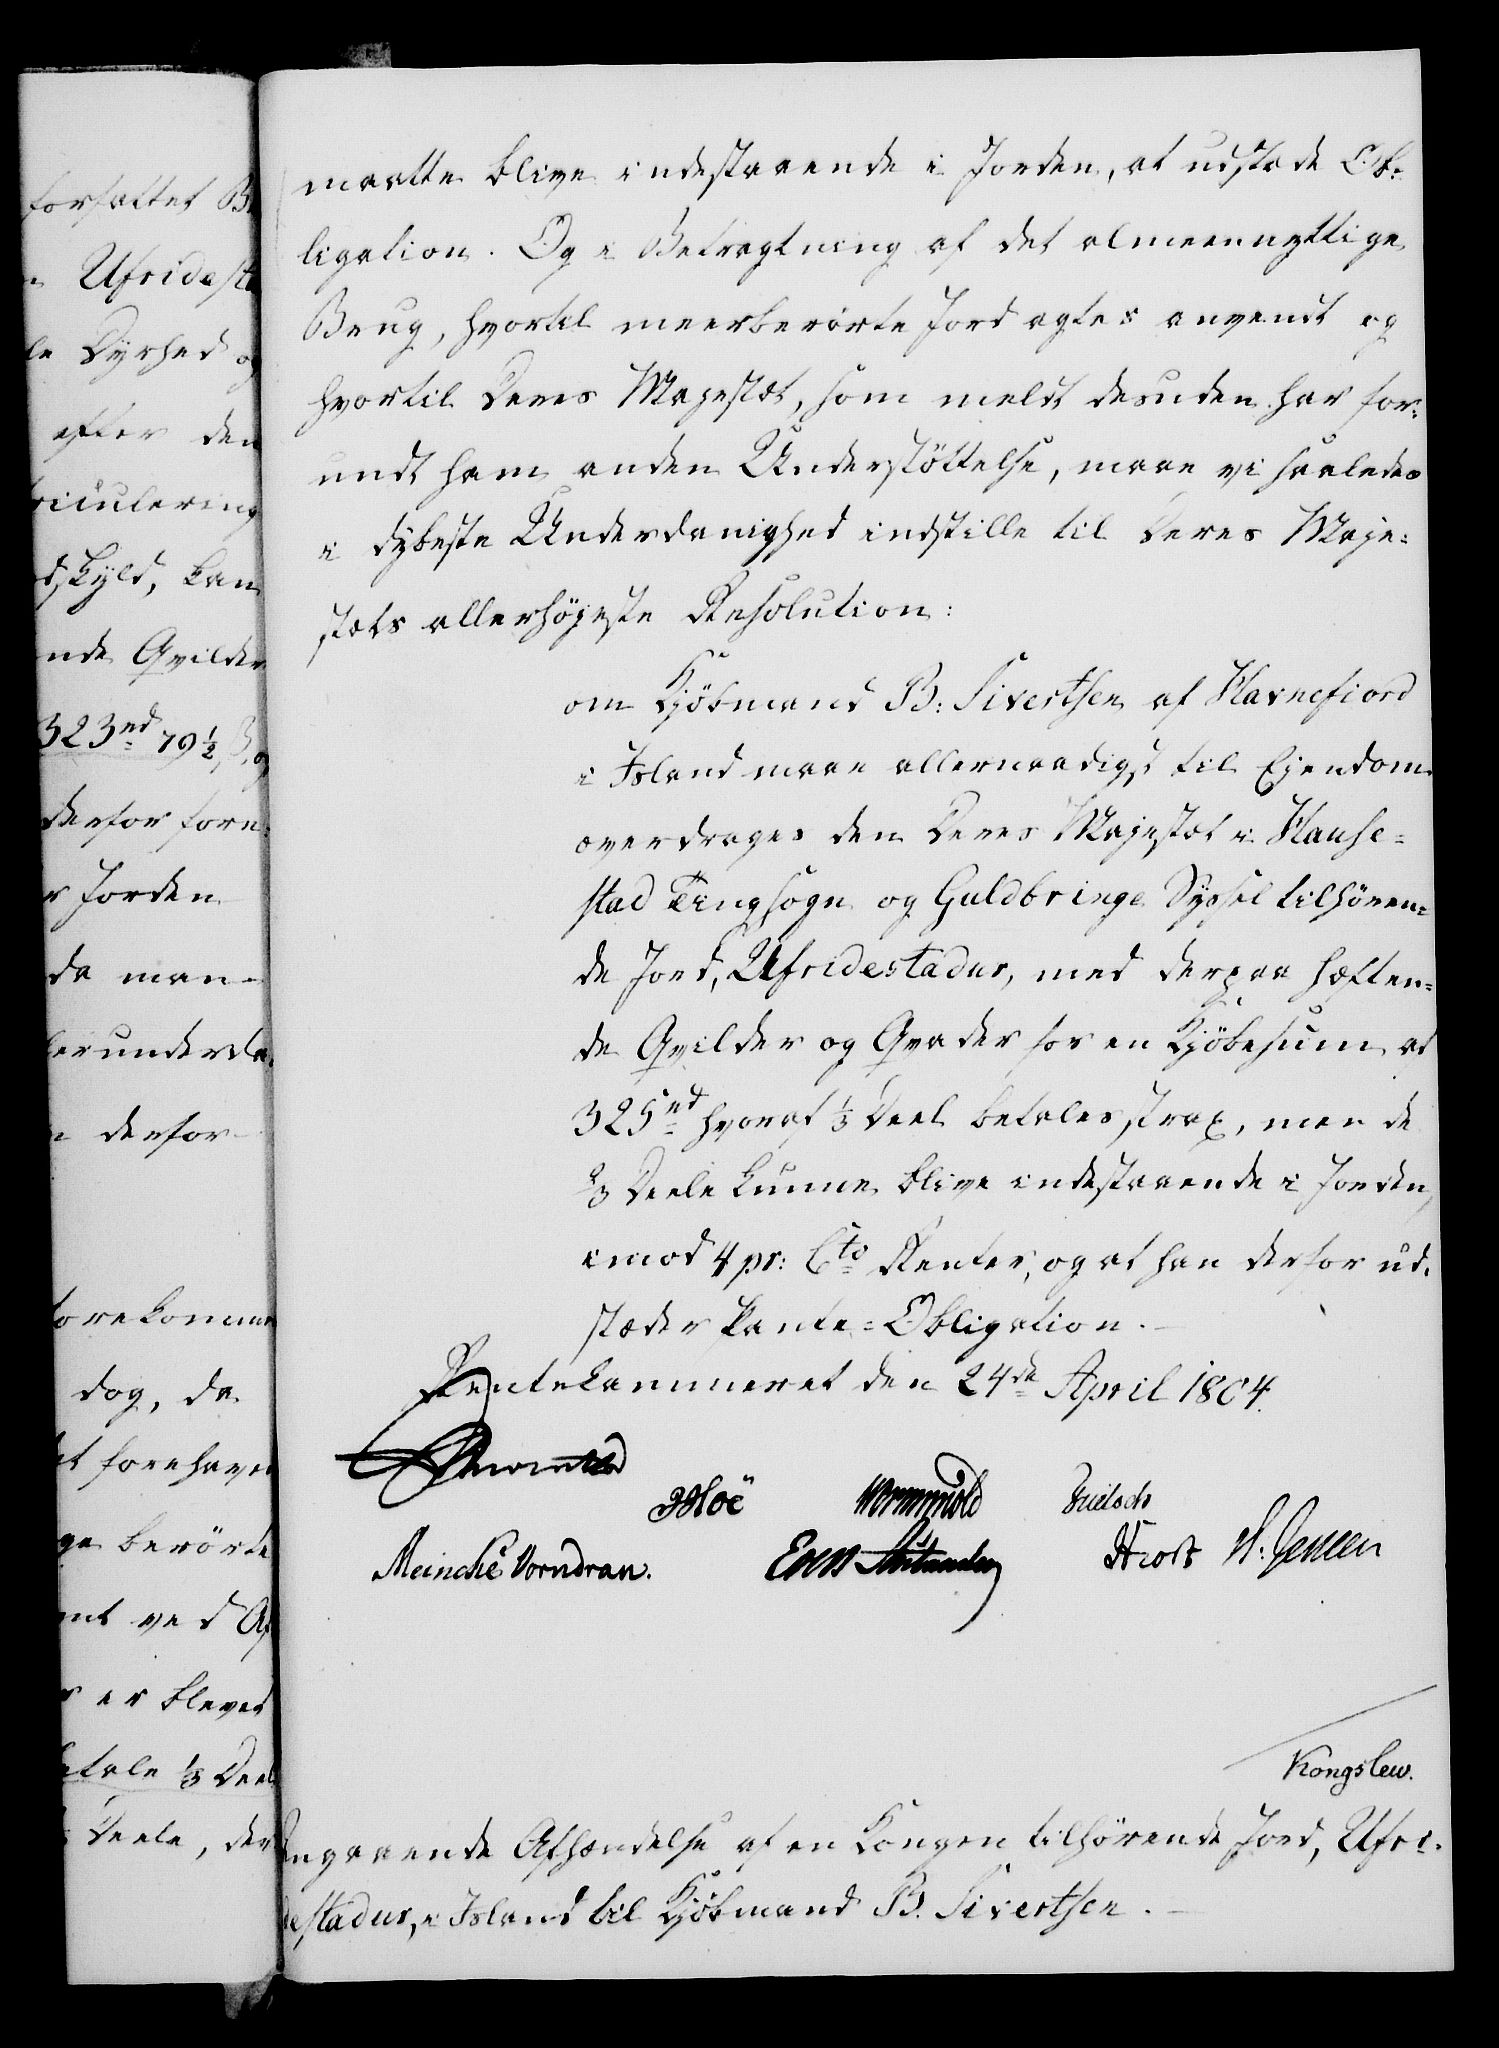 forfattet
Ufridest
Dyrhed og
efter den
riculering
dskyld, kan
nde Qvilder
323 rd 79 1/2 β, og
derfor fore-
r Jorden
da man
lerunderda
derfor
forekomme
dog, da
forehaver
ge berørte
mt ved Af
er blevet
etale 1/3 Deel
Deele, der
maatte blive indestaaende i Jorden, at udstæde Ob-
ligation. Og i Betragtning af det almeennyttige
Brug, hvortil meerberørte Jord agtes anvendt og
hvortil Deres Majestæt, som meldt desuden har for-
undt ham anden Understöttelse, maae vi saaledes
i dybeste Underdanighed indstille til Deres Maje-
stæts allerhöjeste Resolution:
om Kjöbmand B: Sivertsen af Havnefiord
i Island maae allernaadigst til Ejendom
overdrages den Deres Majestæt i Hause-
stad Tingsogn og Guldbringe Syssel tilhören-
de Jord, Ufridestadur, med derpaa hæften-
de Qvilder og Qvæder for en Kjöbesum af
325 rd hvoraf 1/3 Deel betales strax, men de
2/3 Deele kunne blive indestaaende i Jorden,
imod 4 pr: Cto Renter, og at han derfor ud-
stæder Pante-Obligation.
Rentekammeret den 24de April 1804.
Wormskiold
Meincke Vorndran.
Hiort H: Jensen
Kongslew.
Angaaende Afhændelse af en Kongen tilhörende Jord, Ufri-
destadur, i Island til Kjöbmand B. Sivertsen.